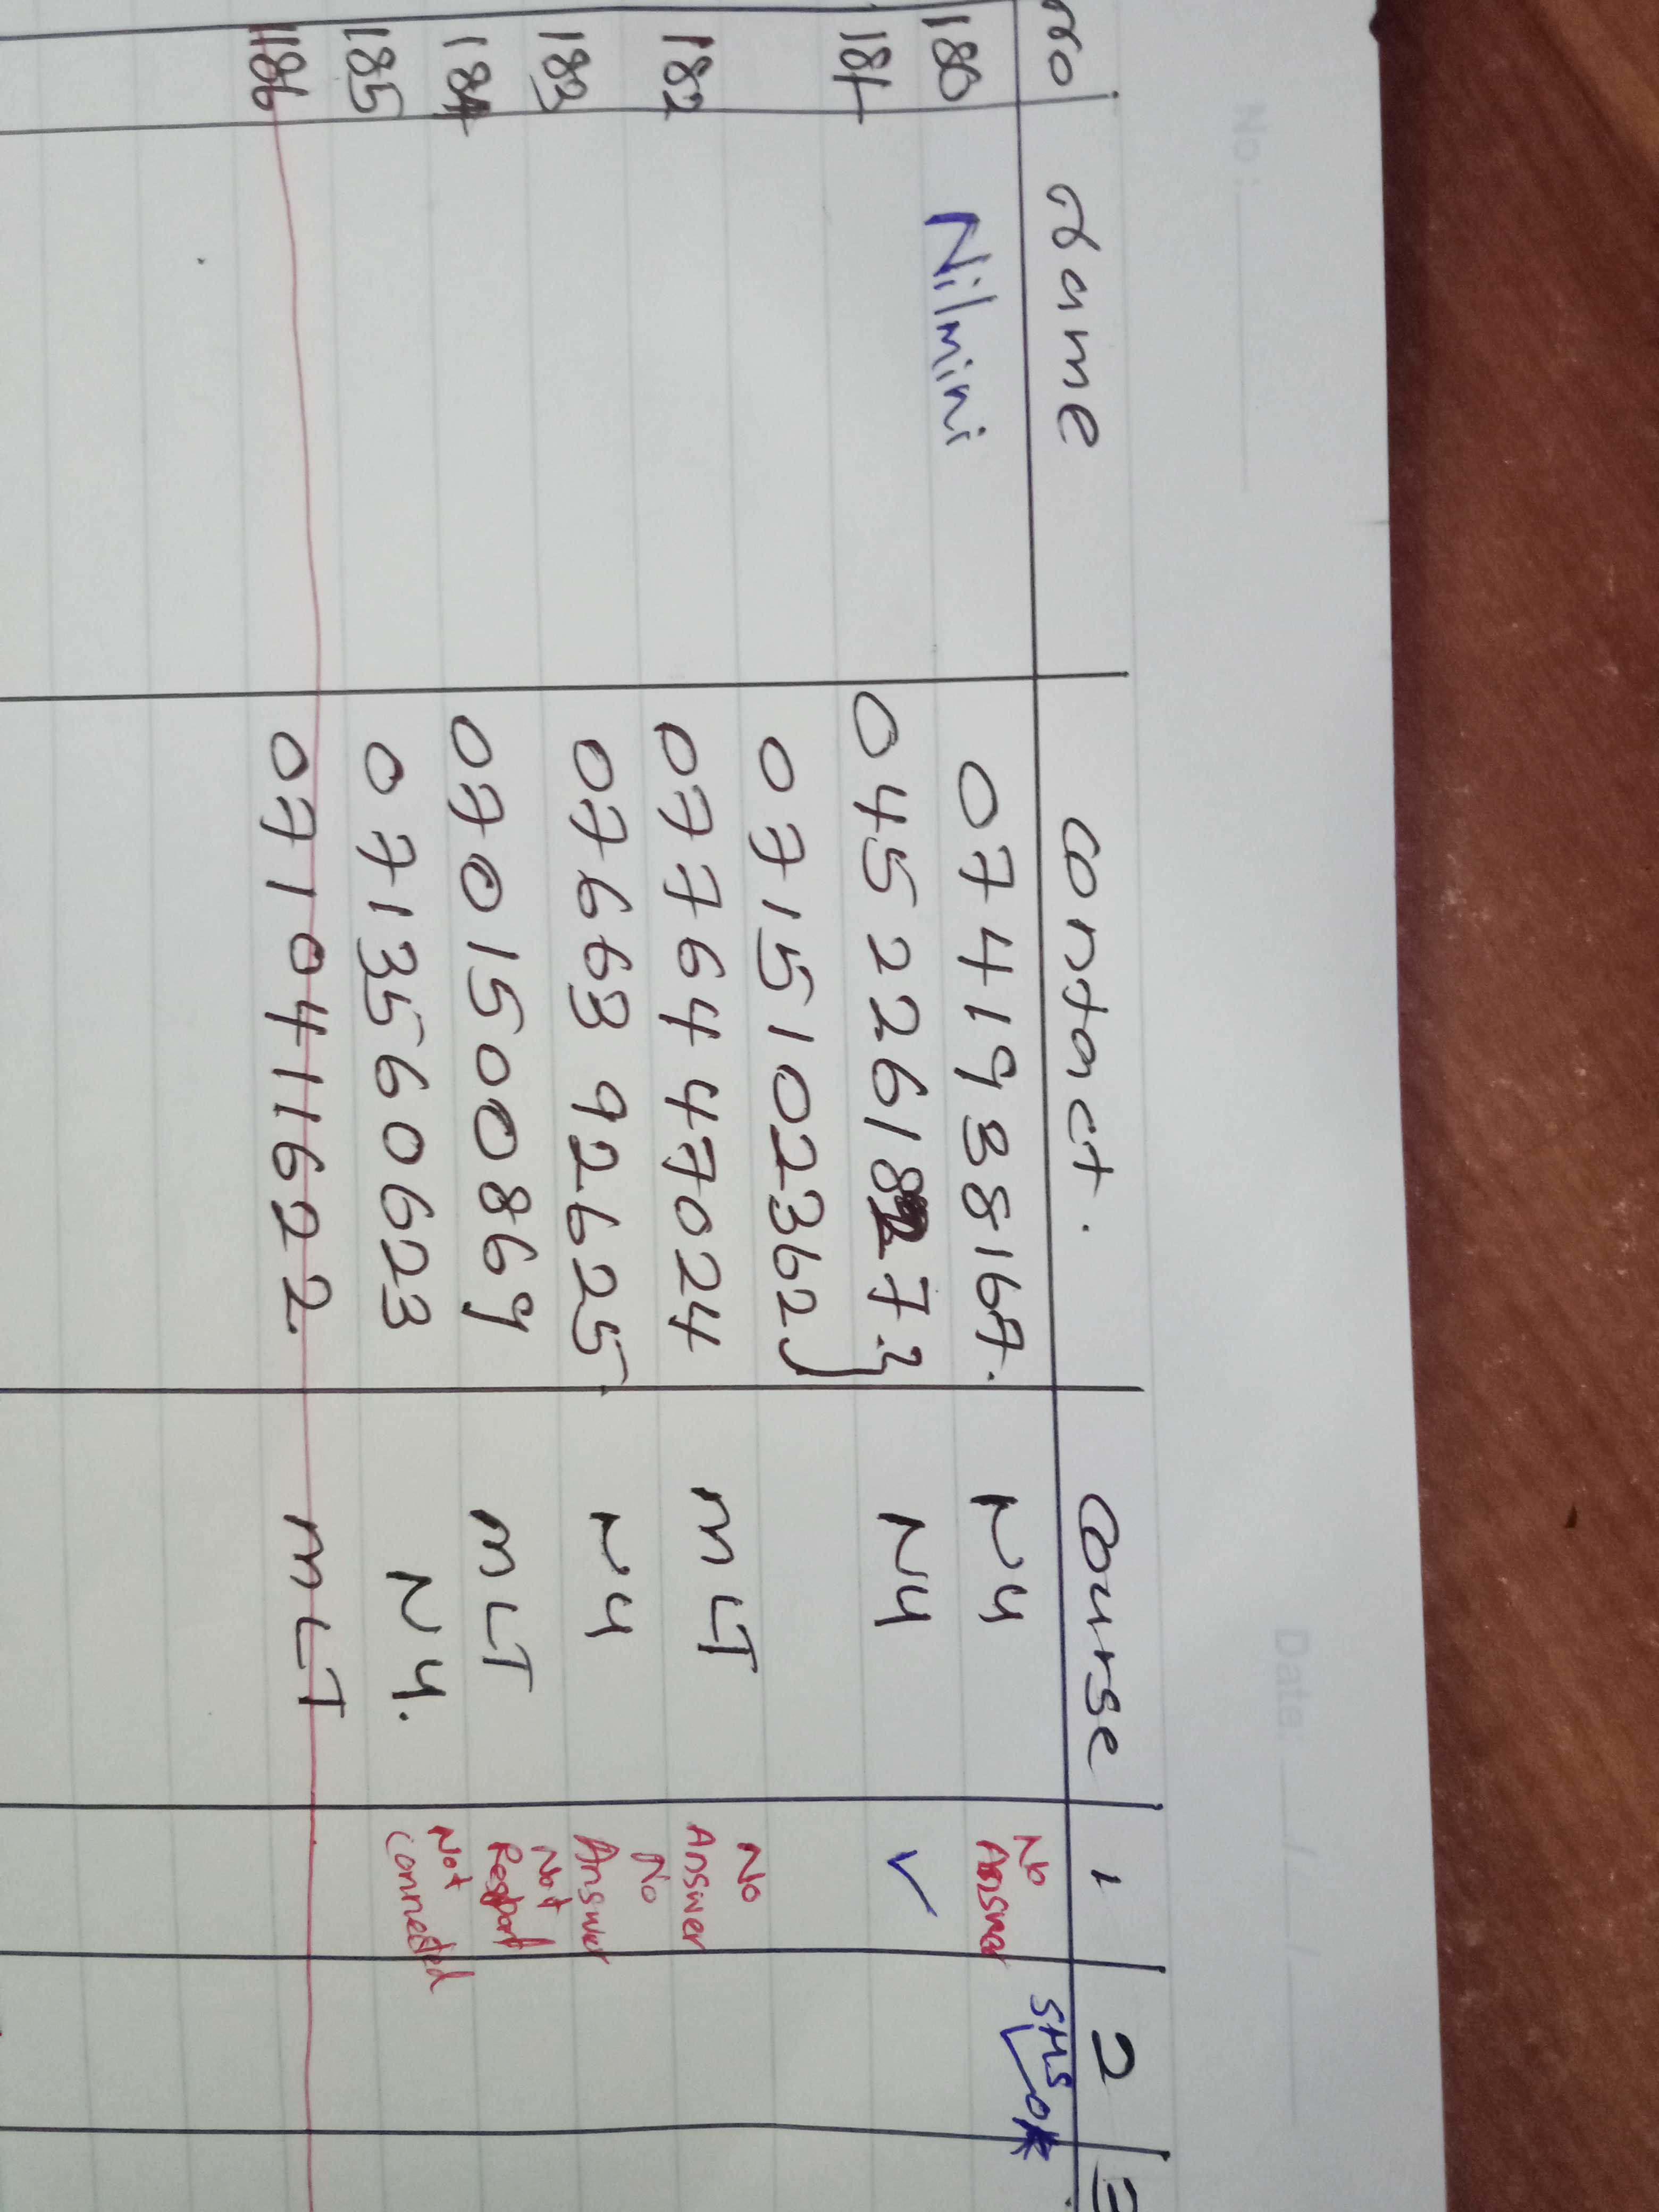 No : Date: / /
No Name contact. course 1 2 3
180 Nilmini 0741938167. N4 No Answer SMS OK
181 0452261873 N4 ✓
0715102362
182 0776447024 MLT No Answer
183 0766392625 N4 No Answer
184 0701500869 MLT Not Respont
185 0713560623 N4. Not Connected
186 0710411622. MLT